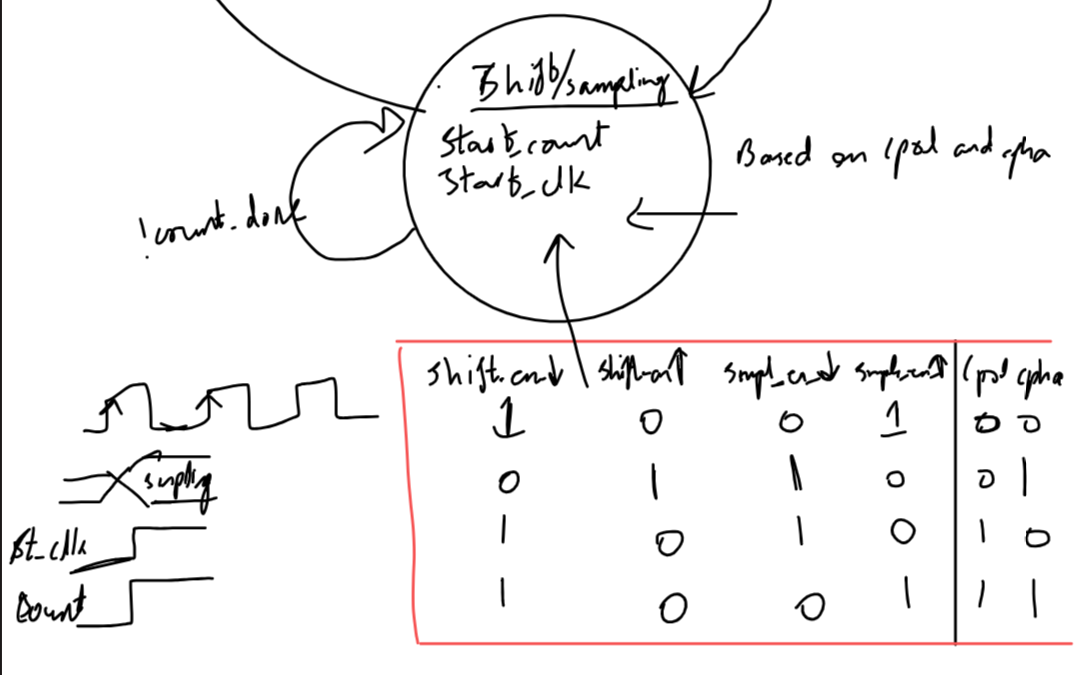 Shift/sampling
Start_count
Start_clk
Based on cpol and cpha
!count_done
shift_en↓ shift_en↑ smpl_en↓ smpl_en↑ cpol cpha
1 0 0 1 0 0
0 1 1 0 0 1
1 0 1 0 1 0
1 0 0 1 1 1
smpling
St_clk
Count